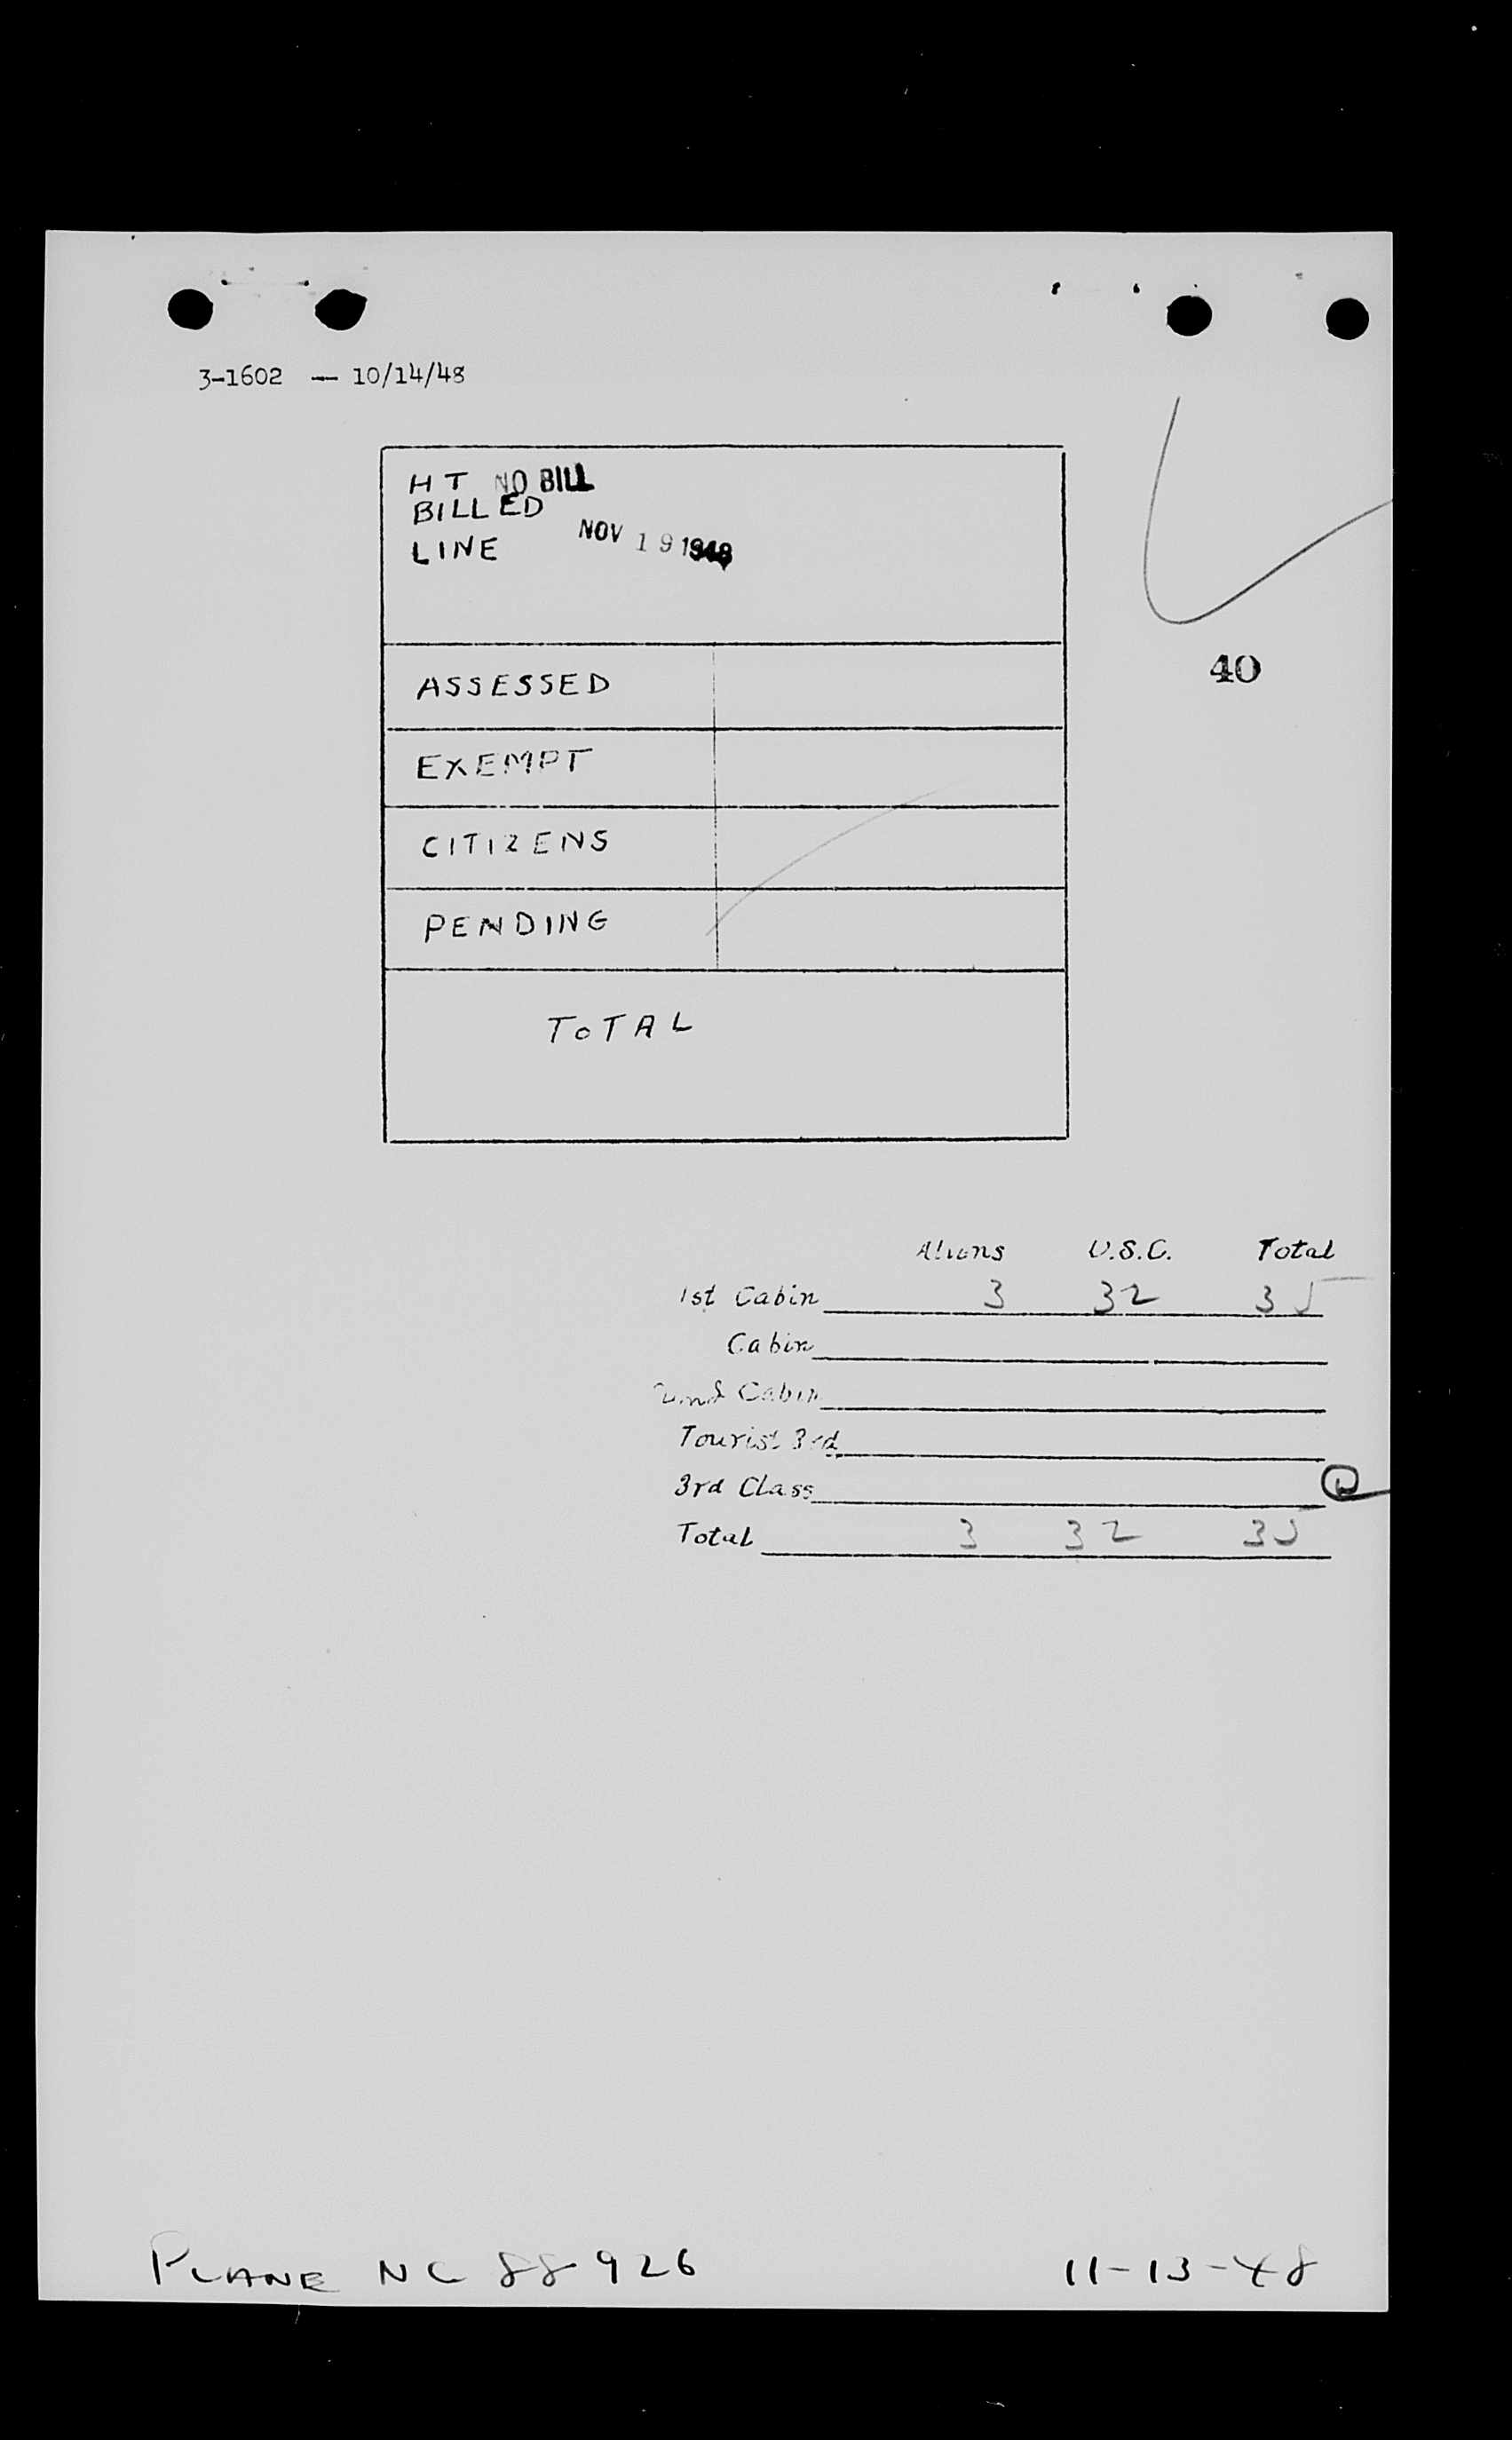 3-1602 — 10/14/48
HT NO BILL
BILLED
NOV 19 1948
LINE
40
ASSESSED
EXEMPT
CITIZENS
PENDING
TOTAL
Aliens U.S.C. Total
1st Cabin 3 32 35
Cabin
Cabin
Tourist 3rd
3rd Class
Total 3 32 35
PLANE NC 88926 11-13-48